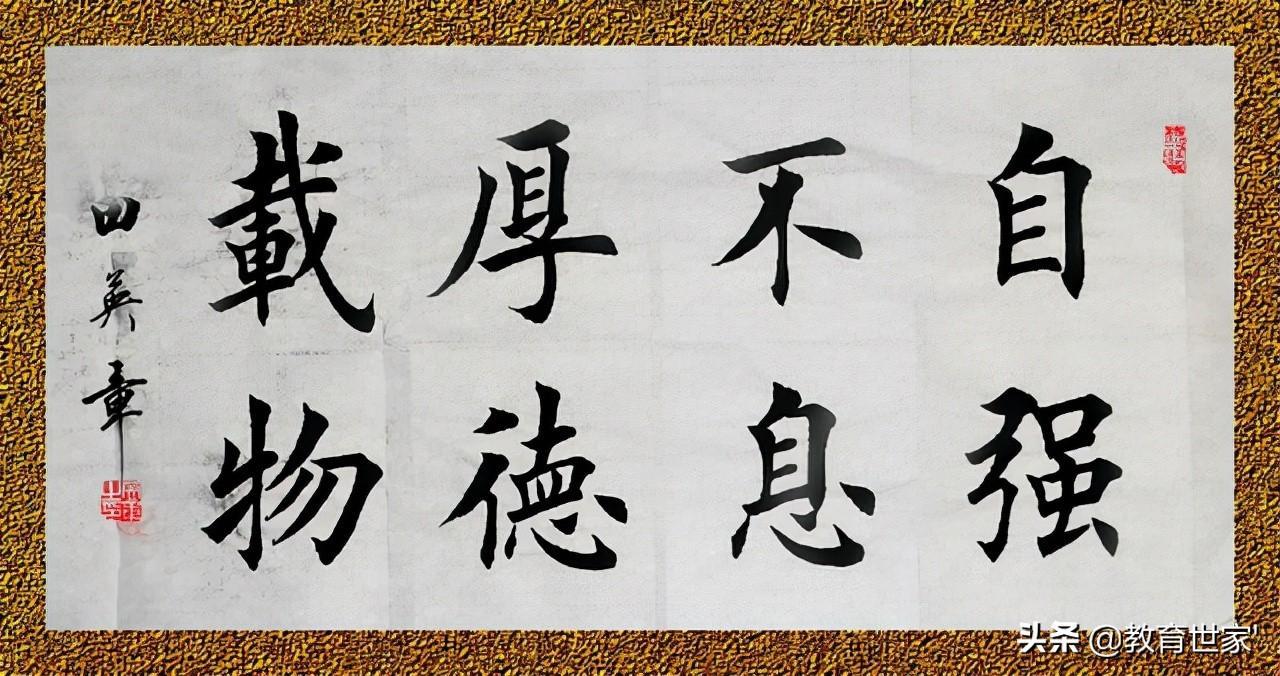 自强
不息
厚德
載物
田英章
头条 @教育世家'